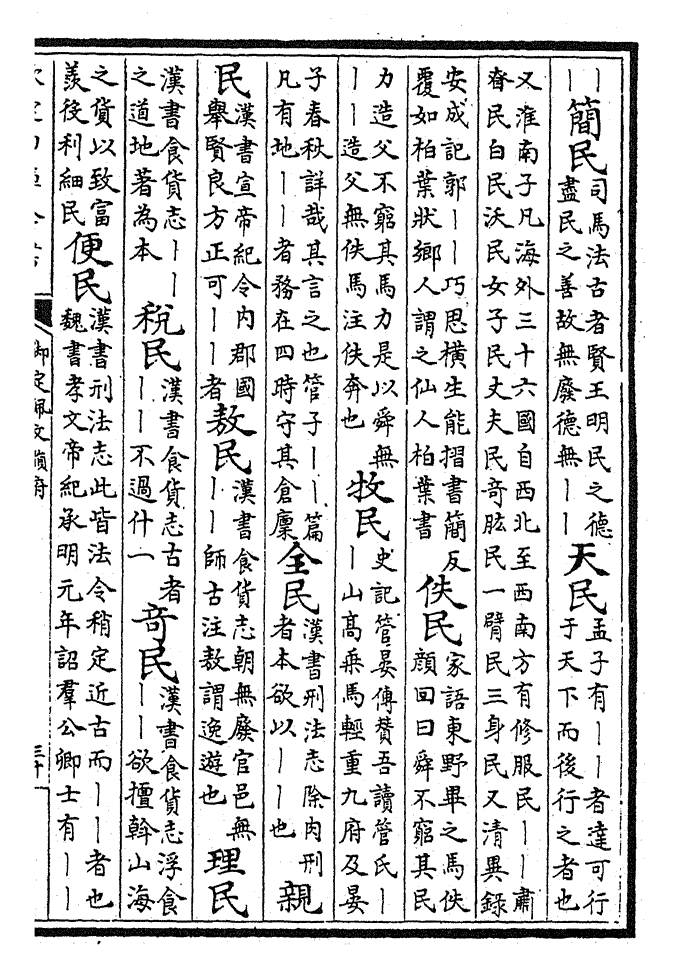 丨丨
簡民
司馬法古者賢王明民之德
盡民之善故無廢德無丨丨
天民
孟子有丨丨者達可行
于天下而後行之者也
又淮南子凡海外三十六國自西北至西南方有修服民丨丨肅
眘民白民沃民女子民丈夫民奇肱民一臂民三身民又清異錄
安成記郭丨丨巧思橫生能摺書簡反
覆如柏葉狀鄉人謂之仙人柏葉書
佚民
家語東野畢之馬佚
顔回曰舜不窮其民
力造父不窮其馬力是以舜無
丨丨造父無佚馬注佚奔也
牧民
史記管晏傳贊吾讀管氏丨
丨山髙乗馬輕重九府及晏
子春秋詳哉其言之也管子丨丨篇
凡有地丨丨者務在四時守其倉廩
全民
漢書刑法志除肉刑
者本欲以丨丨也
親
民
漢書宣帝紀令内郡國
舉賢良方正可丨丨者
敖民
漢書食貨志朝無廢官邑無
丨丨師古注敖謂逸遊也
理民
漢書食貨志丨丨
之道地著為本
稅民
漢書食貨志古者
丨丨不過什一
奇民
漢書食貨志浮食
丨丨欲擅斡山海
之貨以致富
羨役利細民
便民
漢書刑法志此皆法令稍定近古而丨丨者也
魏書孝文帝紀承明元年詔羣公卿士有丨丨
欽定四庫全書
御定佩文韻府
三十